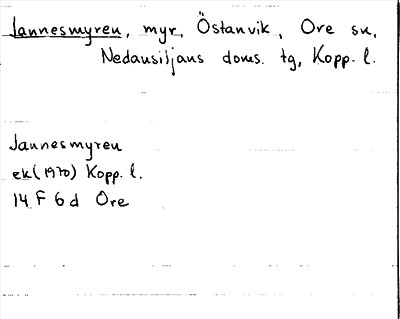 Jannesmyren, myr, Östanvik, Ore sn,
Nedansiljans doms. tg, Kopp. l.
Jannesmyren
ek (1970) Kopp. l.
14 F 6 d Ore